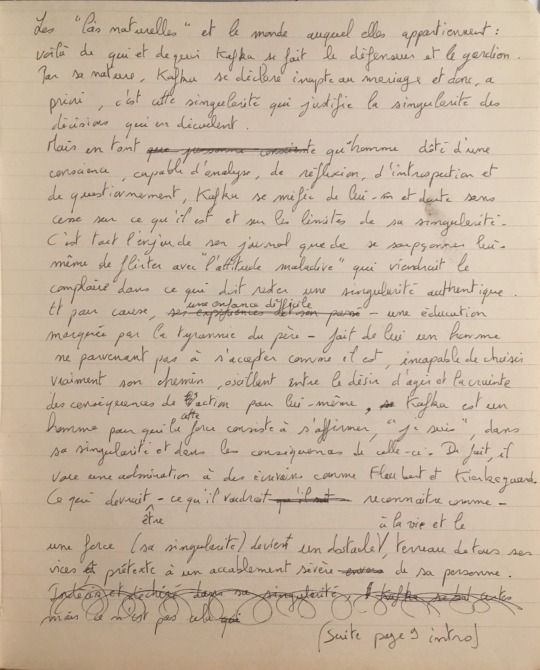 Les "lois naturelles" et le monde auquel elles appartiennent :
voilà de qui et de quoi Kafka se fait le défenseur et le gardien.
Par sa nature, Kafka se déclare inapte au mariage et donc, a
priori, c'est cette singularité qui justifie la singularité des
décisions qui en découlent.
Mais en tant que personne consciente qu'homme dôté d'une
conscience, capable d'analyse, de réflexion, d'introspection et
de questionnement, Kafka se méfie de lui-m et doute sans
cesse sur ce qu'il est et sur les limites de sa singularité.
C'est tout l'enjeu de son journal que de se soupçonner lui-
même de flirter avec "l'attitude maladive" qui viendrait le
complaire dans ce qui doit rester une singularité authentique.
Et pour cause, ses expériences de son passé
une enfance difficile
- une éducation
marquée par la tyrannie du père - fait de lui un homme
ne parvenant pas à s'accepter comme il est, incapable de choisir
vraiment son chemin, oscillant entre le désir d'agir et la crainte
des conséquences de l'action pour lui-même, Kafka est un
homme pour qui la
cette
force consiste à s'affirmer, "je suis", dans
sa singularité et dans les conséquences de celle-ci. De fait, il
voue une admiration à des écrivains comme Flaubert et Kierkegaard.
Ce qui devrait - ce qu'il voudrait qu'il soit reconnaître comme -
être
à la vie et le
une force (sa singularité) devient un obstacle, terreau de tous ses
vices et prétexte à un accablement sévère envers de sa personne.
dans sa singularité, Kafka
mais ce n'est pas cela qui
(suite page 9 intro)